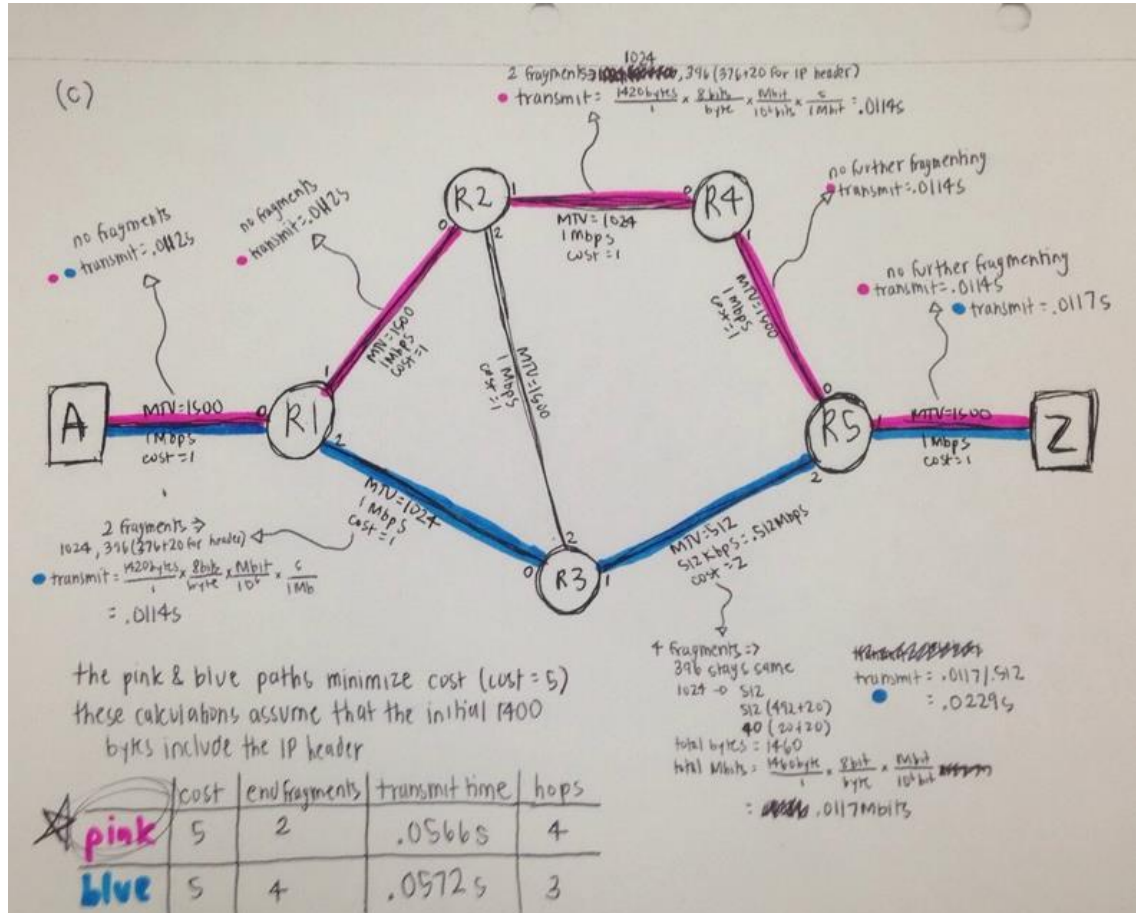 (c)
1024
2 fragments → , 396 (376+20 for IP header)
transmit = 1420bytes/1 × 8bits/byte × Mbit/10⁶bits × s/1Mbit = .0114s
no fragments
transmit = .0112s
no fragments
transmit = .0112s
no further fragmenting
transmit = .0114s
no further fragmenting
transmit = .0114s
transmit = .0117s
R2
1
0
2
MTU=1024
1Mbps
cost=1
0
R4
1
MTU=1500
1Mbps
cost=1
MTU=1500
1Mbps
cost=1
MTU=1500
1Mbps
cost=1
A
MTU=1500
1Mbps
cost=1
0
R1
1
2
0
R5
1
2
MTU=1500
1Mbps
cost=1
Z
MTU=1024
1Mbps
cost=1
2
0
R3
1
MTU=512
512Kbps = .512Mbps
cost=2
2 fragments →
1024, 396 (376+20 for header)
transmit = 1420bytes/1 × 8bits/byte × Mbit/10⁶ × s/1Mb
= .0114s
4 fragments =>
396 stays same
1024 → 512
512 (492+20)
40 (20+20)
total bytes = 1460
total Mbits = 1460byte/1 × 8bit/byte × Mbit/10⁶bit
= .0117Mbits
transmit = .0117/.512
= .0229s
the pink & blue paths minimize cost (cost = 5)
these calculations assume that the initial 1400
bytes include the IP header
cost | end fragments | transmit time | hops
pink | 5 | 2 | .0566s | 4
blue | 5 | 4 | .0572s | 3